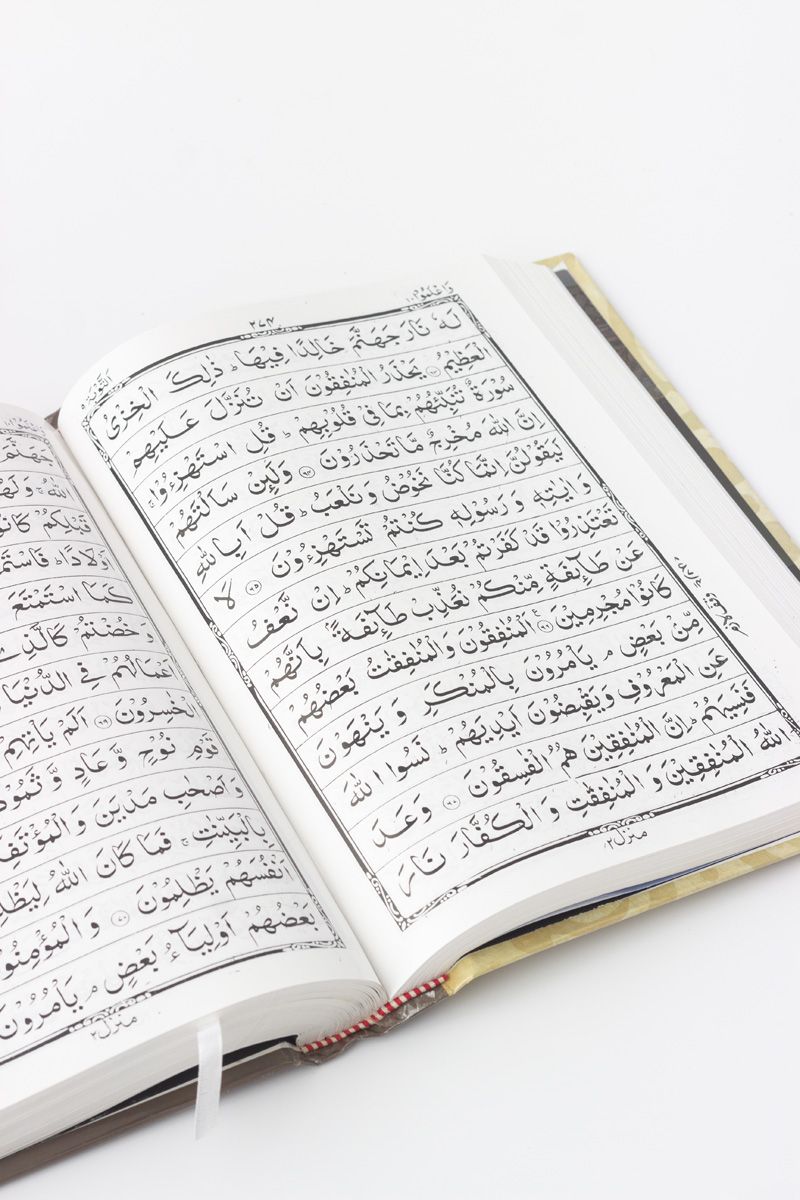 وَاعْلَمُوْٓا ١٠
٢٧٤
التَّوْبَة ٩
لَهٗ نَارَ جَهَنَّمَ خَالِدًا فِيْهَا ؕ ذٰلِكَ الْخِزْىُ
الْعَظِيْمُ ﴿۶۳﴾ يَحْذَرُ الْمُنٰفِقُوْنَ اَنْ تُنَزَّلَ عَلَيْهِمْ
سُوْرَةٌ تُنَبِّئُهُمْ بِمَا فِىْ قُلُوْبِهِمْ ؕ قُلِ اسْتَهْزِءُوْا ۚ
اِنَّ اللّٰهَ مُخْرِجٌ مَّا تَحْذَرُوْنَ ﴿۶۴﴾ وَلَئِنْ سَاَلْتَهُمْ
لَيَقُوْلُنَّ اِنَّمَا كُنَّا نَخُوْضُ وَنَلْعَبُ ؕ قُلْ اَبِاللّٰهِ
وَاٰيٰتِهٖ وَرَسُوْلِهٖ كُنْتُمْ تَسْتَهْزِءُوْنَ ﴿۶۵﴾ لَا
تَعْتَذِرُوْا قَدْ كَفَرْتُمْ بَعْدَ اِيْمَانِكُمْ ؕ اِنْ نَّعْفُ
عَنْ طَآئِفَةٍ مِّنْكُمْ نُعَذِّبْ طَآئِفَةًۢ بِاَنَّهُمْ
كَانُوْا مُجْرِمِيْنَ ﴿۶۶﴾ اَلْمُنٰفِقُوْنَ وَالْمُنٰفِقٰتُ بَعْضُهُمْ
مِّنْ بَعْضٍ ۘ يَاْمُرُوْنَ بِالْمُنْكَرِ وَيَنْهَوْنَ
عَنِ الْمَعْرُوْفِ وَيَقْبِضُوْنَ اَيْدِيَهُمْ ؕ نَسُوا اللّٰهَ
فَنَسِيَهُمْ ؕ اِنَّ الْمُنٰفِقِيْنَ هُمُ الْفٰسِقُوْنَ ﴿۶۷﴾ وَعَدَ
اللّٰهُ الْمُنٰفِقِيْنَ وَالْمُنٰفِقٰتِ وَالْكُفَّارَ نَارَ
منزل ٢
جَهَنَّمَ
اللّٰهُ ۚ وَلَهُمْ
قَبْلِكُمْ كَانُوْٓا
وَّاَوْلَادًا ؕ فَاسْتَمْتَعُوْا
كَمَا اسْتَمْتَعَ
وَخُضْتُمْ كَالَّذِىْ
اَعْمَالُهُمْ فِى الدُّنْيَا
الْخٰسِرُوْنَ ﴿۶۹﴾ اَلَمْ يَاْتِهِمْ
قَوْمِ نُوْحٍ وَّعَادٍ وَّثَمُوْدَ
وَاَصْحٰبِ مَدْيَنَ وَالْمُؤْتَفِكٰتِ
بِالْبَيِّنٰتِ ۚ فَمَا كَانَ اللّٰهُ لِيَظْلِمَهُمْ
اَنْفُسَهُمْ يَظْلِمُوْنَ ﴿۷۰﴾ وَالْمُؤْمِنُوْنَ
بَعْضُهُمْ اَوْلِيَآءُ بَعْضٍ ۘ يَاْمُرُوْنَ
منزل ٢